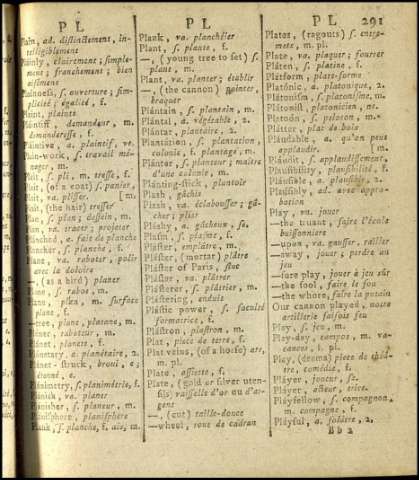 P L
P L
P L 291
Plain, ad. distinctement, in-
telligiblement
Plainly, clairement; simple-
ment; franchement; bien
Plainness, s. ouverture; sim-
plicité; égalité, f.
Plaint, plainte
Plaintiff, demandeur, m.
demanderesse, f.
Plaintive, a. plaintif, ve.
Plain-work, s. travail mé-
nager, m.
Plait, s. pli, m. tresse, f.
Plait, (of a coat) s. panier,
Plait, va. plisser, [m.
Plait, (the hair) tresser
Plan, s. plan; dessein, m.
Plan, va. tracer; projeter
Planched, a. fait de planche
Plancher, s. planche, f.
Plane, va. raboter, polir
avec la doloire
—, (as a bird) planer
Plane, s. rabot, m.
Plane, plan, m. surface
plane, f.
—tree, plane, platane, m.
Planer, raboteur, m.
Planet, planete, f.
Planetary, a. planétaire, 2.
Planet-struck, broui, e;
étonné, e.
Planimetry, s. planimétrie, f.
Planish, va. planer
Planisher, s. planeur, m.
Planisphere, planisphère
Plank, s. planche, f. ais, m.
Plank, va. planchéier
Plant, s. plante, f.
—, (young tree to set) s.
plant, m.
Plant, va. planter; établir
—, (the cannon) pointer,
braquer
Plántain, s. plantain, m.
Plántal, a. végétable, 2.
Plántar, plantaire, 2.
Plantátion, s. plantation,
colonie, f. plantage, m.
Plánter, s. planteur; maître
d'une colonie, m.
Plánting-stick, plantoir
Plash, gâchis
Plash, va. éclabousser; gâ-
cher; plier
Pláshy, a. gâcheux, se.
Plasm, s. plasme, f.
Pláster, emplâtre, m.
Pláster, (mortar) plâtre
Pláster of Paris, stuc
Pláster, va. plâtrer
Plásterer, s. plâtrier, m.
Plástering, enduit
Plástic power, s. faculté
formatrice, f.
Plástron, plastron, m.
Plat, piece de terre, f.
Plat veins, (of a horse) ars,
m. pl.
Plate, assiette, f.
Plate, (gold or silver uten-
sils) vaisselle d'or ou d'ar-
gent
—, (cut) taille-douce
—wheel, roue de cadran
Plates, (ragouts) s. entre-
mets, m. pl.
Plate, va. plaquer; fourrer
Pláten, s. platine, f.
Plátform, plate-forme
Platónic, a. platonique, 2.
Plátonism, s. platonisme, m.
Plátonist, platonicien, ne.
Platoón, s. peloton, m.
Plátter, plat de bois
Pláusible, a. qu'on peut
applaudir. [m.
Pláudit, s. applaudissement,
Plausibílity, plausibilité, f.
Pláusible, a. plausible, 2.
Pláusibly, ad. avec appro-
bation
Play, va. jouer
—the truant, faire l'école
buissonniere
—upon, va. gausser, railler
—away, jouer; perdre au
jeu
—fore play, jouer à jeu sûr
—the fool, faire le fou
—the whore, faire la putain
Our cannon played, notre
artillerie faisoit feu
Play, s. jeu, m.
Play-day, campos, m. va-
cances, f. pl.
Play, (drama) piece de théâ-
tre, comédie, f.
Pláyer, joueur, se.
Pláyer, acteur, trice.
Pláyfellow, s. compagnon,
m. compagne, f.
Pláyful, a. folâtre, 2.
B b 2